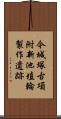 今城塚古墳
附新池埴輪
製作遺跡